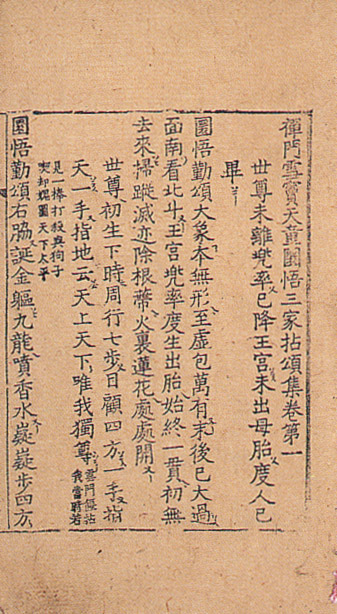 禪門雪竇天童圜悟三家拈頌集卷第一
世尊未離兜率已降王宮未出母胎度人已
畢
圜悟勤頌大象本無形至虛包萬有末後已大過
面南看北斗王宮兜率度生出胎始終一貫初無
去來掃蹤滅迹除根蔕火裏蓮花處處開
世尊初生下時周行七步目顧四方一手指
天一手指地云天上天下唯我獨尊
雲門偃拈
我當時若
見一棒打殺與狗子
喫却圖天下太平
圜悟勤頌右脇誕金軀九龍噴香水嶷嶷步四方